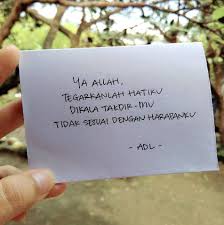 YA ALLAH,
TEGARKANLAH HATIKU
DIKALA TAKDIR-MU
TIDAK SESUAI DENGAN HARAPANKU
- ADL -